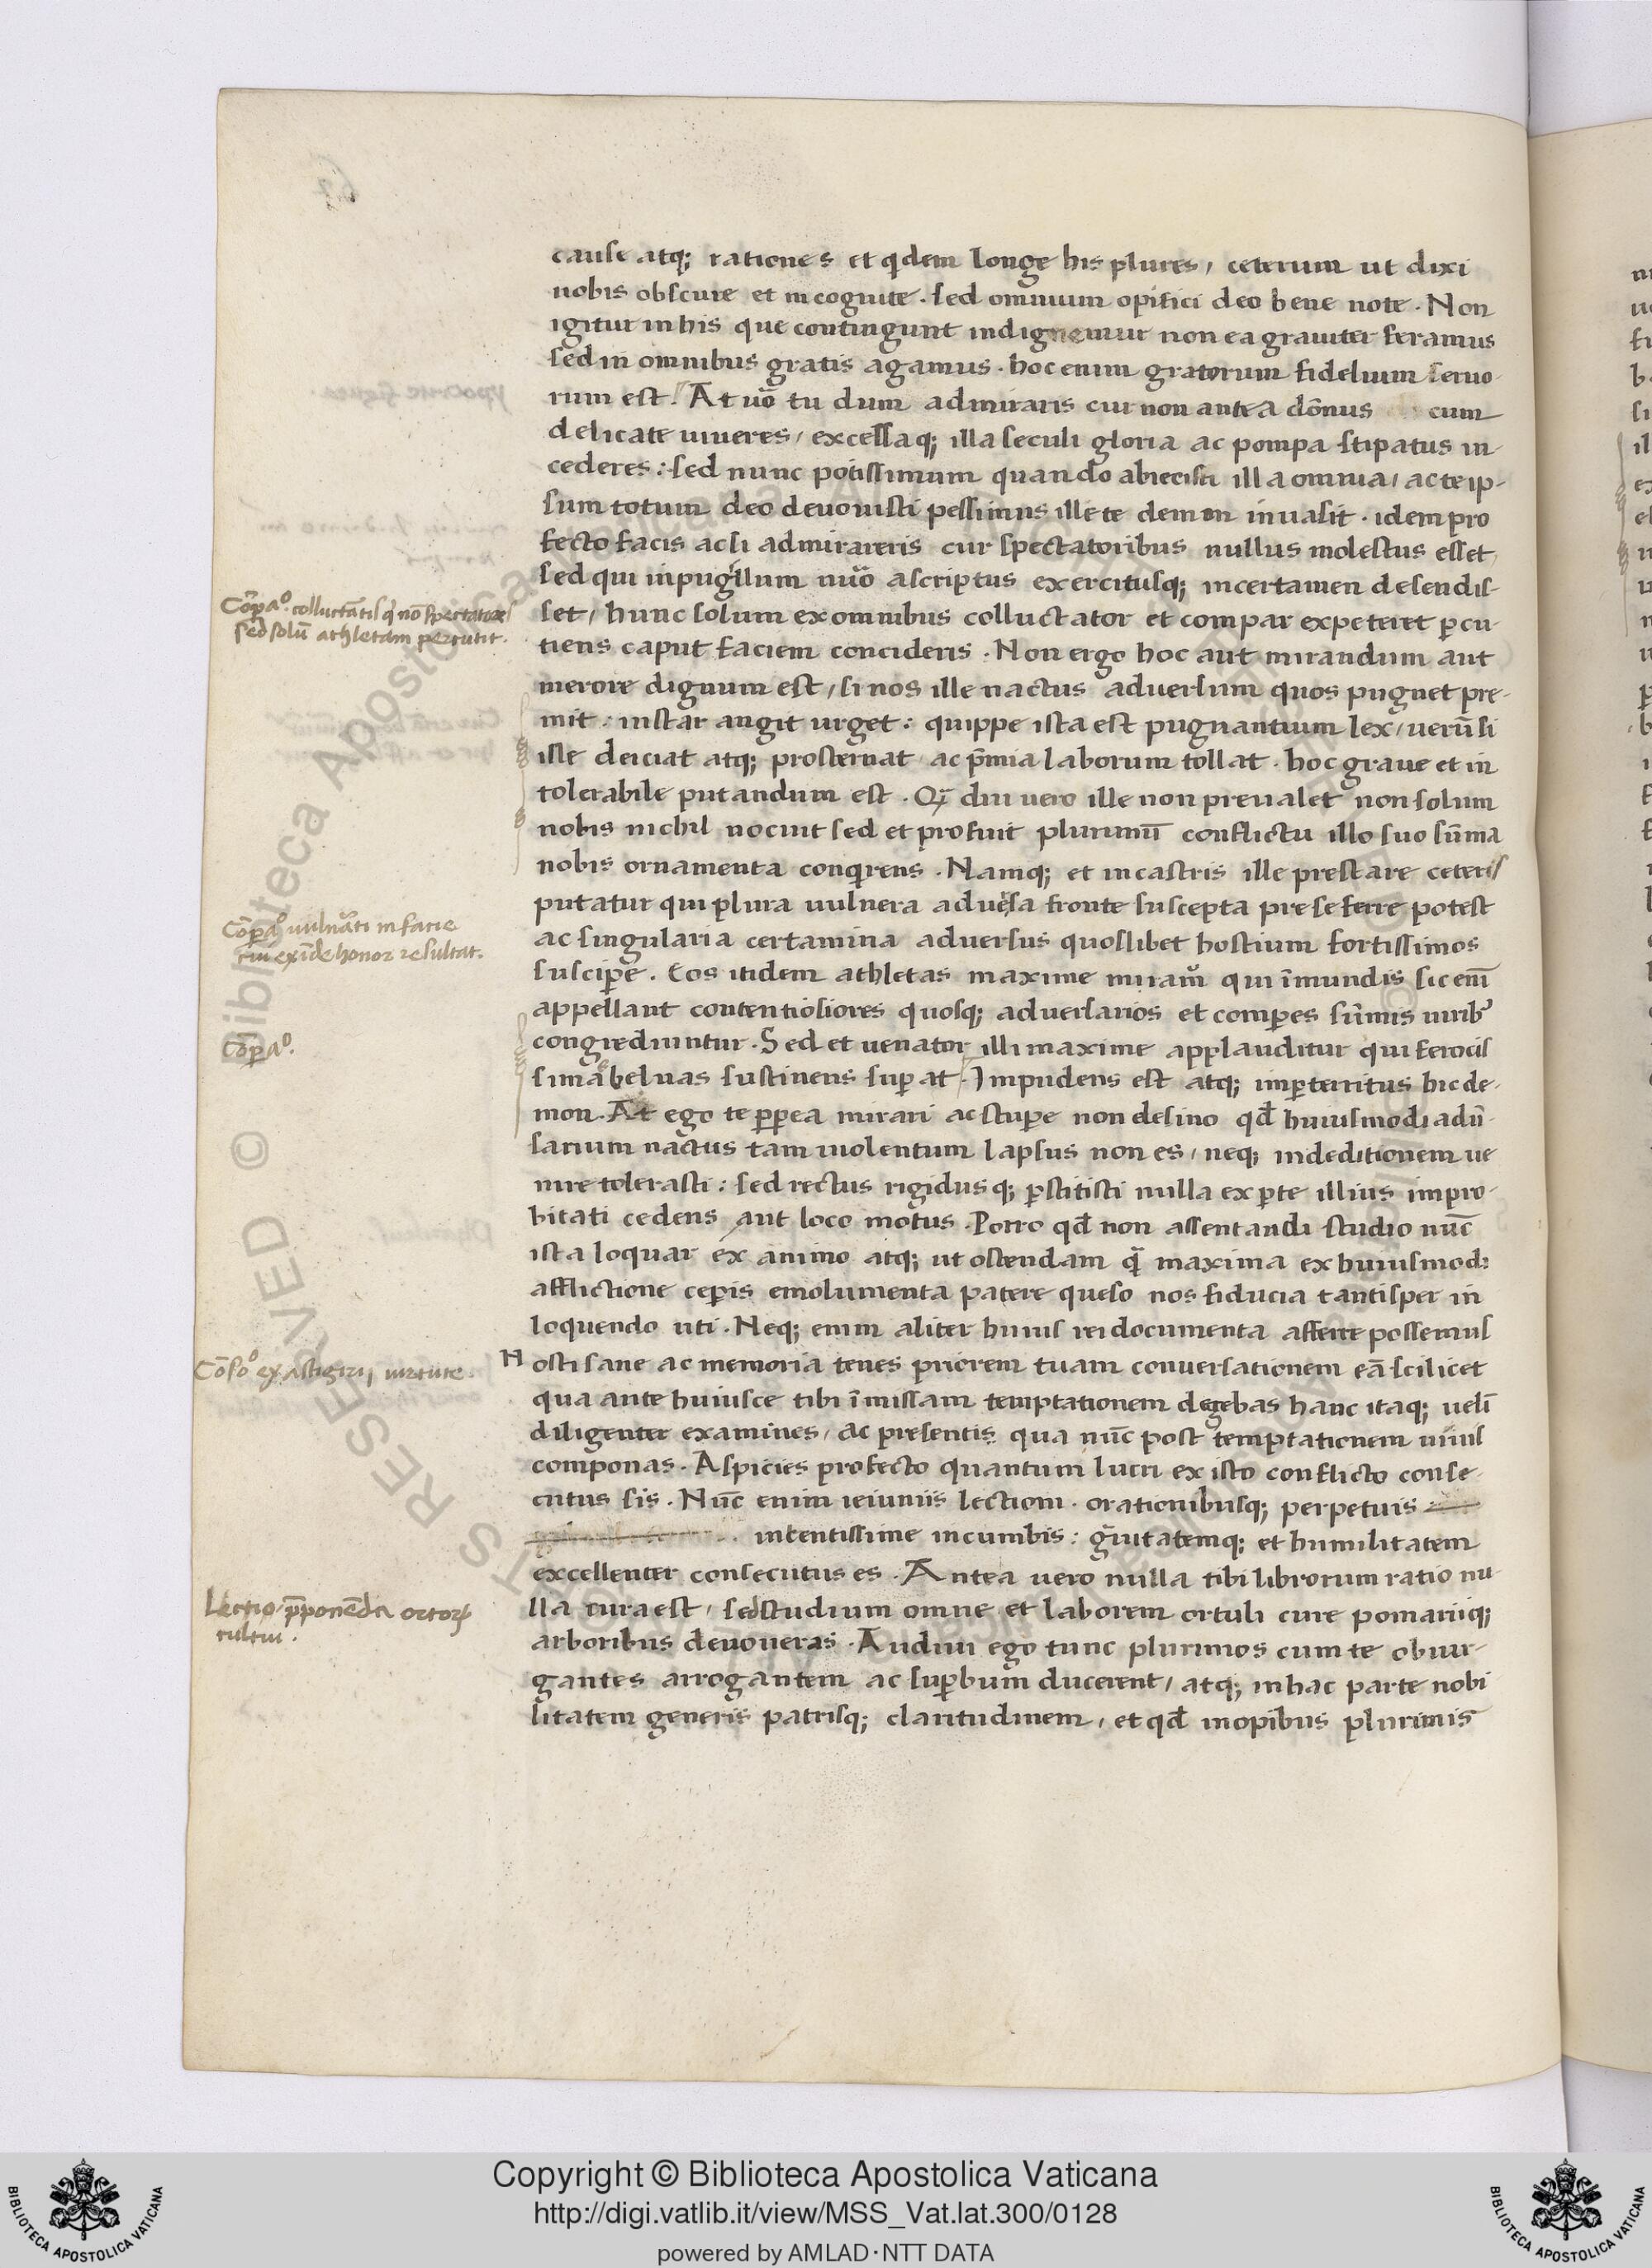 cause atq; rationes et qdem longe his plures, ceterum ut dixi
nobis obscure et incognite. sed omnium opifici deo bene note. Non
igitur in his que contingunt indignemur non ea grauiter feramus
sed in omnibus gratis agamus. hoc enim gratorum fidelium seruo-
rum est. At uo tu dum admiraris cur non antea domus cum
delicate uiueres, excelsaq; illa seculi gloria ac pompa stipatus in-
cederes: sed nunc potissimum quando abiecisti illa omnia, ac te ip-
sum totum deo deuouisti pessimus ille te demon inuasit. idem pro
fecto facis ac si admirareris cur spectatoribus nullus molestus esset,
sed qui in pugillum nuo ascriptus exercitusq; in certamen desendis-
Cōpaº. colluctātis q nō spectatores
sed solū athletam percutit.
set, hunc solum ex omnibus colluctator et compar expeteret pcu-
tiens caput faciem concideris. Non ergo hoc aut mirandum aut
merore dignum est, si nos ille nactus aduersum quos pugnet pre-
mit: instar angit urget: quippe ista est pugnantium lex, uerū si
ille deiciat atq; prosternat ac pmia laborum tollat. hoc graue et in
tolerabile putandum est. Q diu uero ille non preualet non solum
nobis nichil nocuit sed et profuit plurimū conflictu illo suo sūma
nobis ornamenta conqrens. Namq; et in castris ille prestare ceteris
putatur qui plura uulnera aduersa fronte suscepta pre se ferre potest
Cōpaº uulnati in facie
cui exīde honor resultat.
ac singularia certamina aduersus quoslibet hostium fortissimos
suscipe. Eos itidem athletas maxime miramur qui īmundis sic enī
appellant contentiosiores quosq; aduersarios et compes sūmis uirib
Cōpaº.
congrediuntur. Sed et uenator illi maxime applauditur qui ferocis
simas beluas sustinens supat. Impudens est atq; impterritus hic de-
mon. At ego te ppea mirari ac stupe non desino qd huiusmodi adū-
sarium nactus tam uiolentum lapsus non es, neq; in deditionem ue
nire tolerasti: sed rectus rigidusq; pstitisti nulla ex pte illius impro-
bitati cedens aut loco motus. Porro qd non assentandi studio nūc
ista loquar ex animo atq; ut ostendam q maxima ex huiusmodi
afflictione ceperis emolumenta patere queso nos fiducia tantisper in
loquendo uti. Neq; enim aliter huius rei documenta afferre possemus
Cōfoº ex astigirij uirtute.
Nosti sane ac memoria tenes priorem tuam conuersationem eā scilicet
qua ante huiusce tibi īmissam temptationem degebas hanc itaq; uelī
diligenter examines, ac presentis qua nūc post temptationem uiuis
componas. Aspicies profecto quantum lucri ex isto conflicto conse-
cutus sis. Nūc enim ieiuniis lectioni. orationibusq; perpetuis
intentissime incumbis: grauitatemq; et humilitatem
excellenter consecutus es. Antea uero nulla tibi librorum ratio nu-
Lectio pponēda ortor
cultui.
lla cura est, sed studium omne et laborem ortuli cure pomariiq;
arboribus deuoueras. Audiui ego tunc plurimos cum te obiur-
gantes arrogantem ac supbum ducerent, atq; in hac parte nobi
litatem generis patrisq; claritudinem, et qd in opibus plurimis
Copyright © Biblioteca Apostolica Vaticana
http://digi.vatlib.it/view/MSS_Vat.lat.300/0128
powered by AMLAD·NTT DATA
BIBLIOTECA APOSTOLICA VATICANA
BIBLIOTECA APOSTOLICA VATICANA